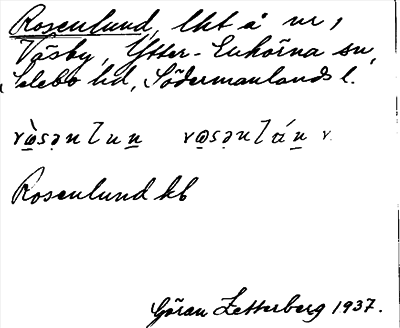 Rosenlund, lht å nr 1
Väsby, Ytter-Enhörna sn,
Selebo hd, Södermanlands l.
Rosenlund kb
Göran Zetterberg 1937.